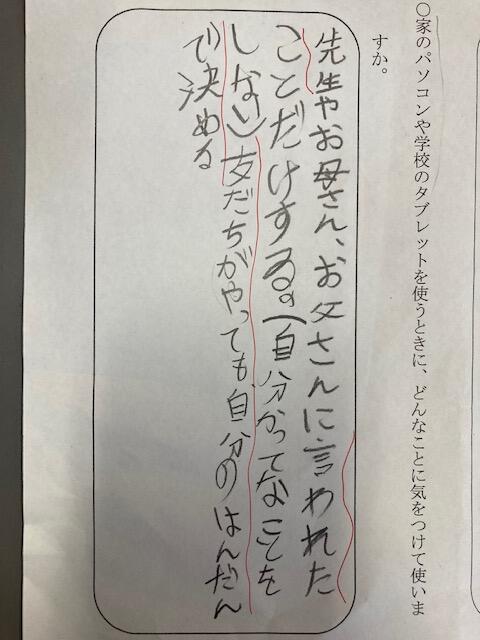 ○家のパソコンや学校のタブレットを使うときに、どんなことに気をつけて使いま
すか。
先生やお母さん、お父さんに言われた
ことだけする。(自分かってなことを
しない)友だちがやっても、自分のはんだん
で決める